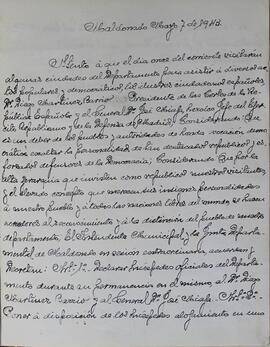 Maldonado Mayo 7 de 1943.
Atento á que el dia once del corriente visitarán
algunas ciudades del Departamento para asistir á diversos ac-
tos populares y democráticos, los ilustres ciudadanos españoles,
Dr. Diego Martínez Barrio, Presidente de las Cortes de la Re-
pública Española y el General Dr. José Miaja, heroico Jefe del Ejér-
cito Republicano y de la Defensa de Madrid; Considerando: Que
es un deber de los pueblos y autoridades de honda vocación demo-
crática consultar la personalidad de tan destacados republicanos y es-
forzados defensores de la Democracia; Considerando: Que por la
alta jerarquia que invisten como republicanos nuestros visitantes
y el elevado concepto que merecen sus insignes personalidades
á nuestro pueblo y á todas las naciones libres del mundo, se hacen
acreedores al reconocimiento y á la distinción del pueblo de nuestro
departamento, El Intendente Municipal y la Junta Departa-
mental de Maldonado en sesión extraordinaria, acuerdan y
Decretan: Art. 1º. Declarar huéspedes oficiales del Departa-
mento durante su permanencia en el mismo al Dr. Diego
Martínez Barrio y al General Dr. José Miaja. Art. 2º.
Poner á disposición de los huéspedes alojamiento en una